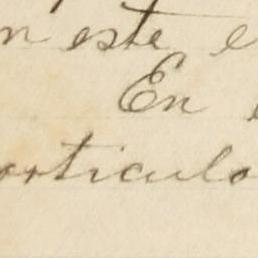 n este e
En
articulo